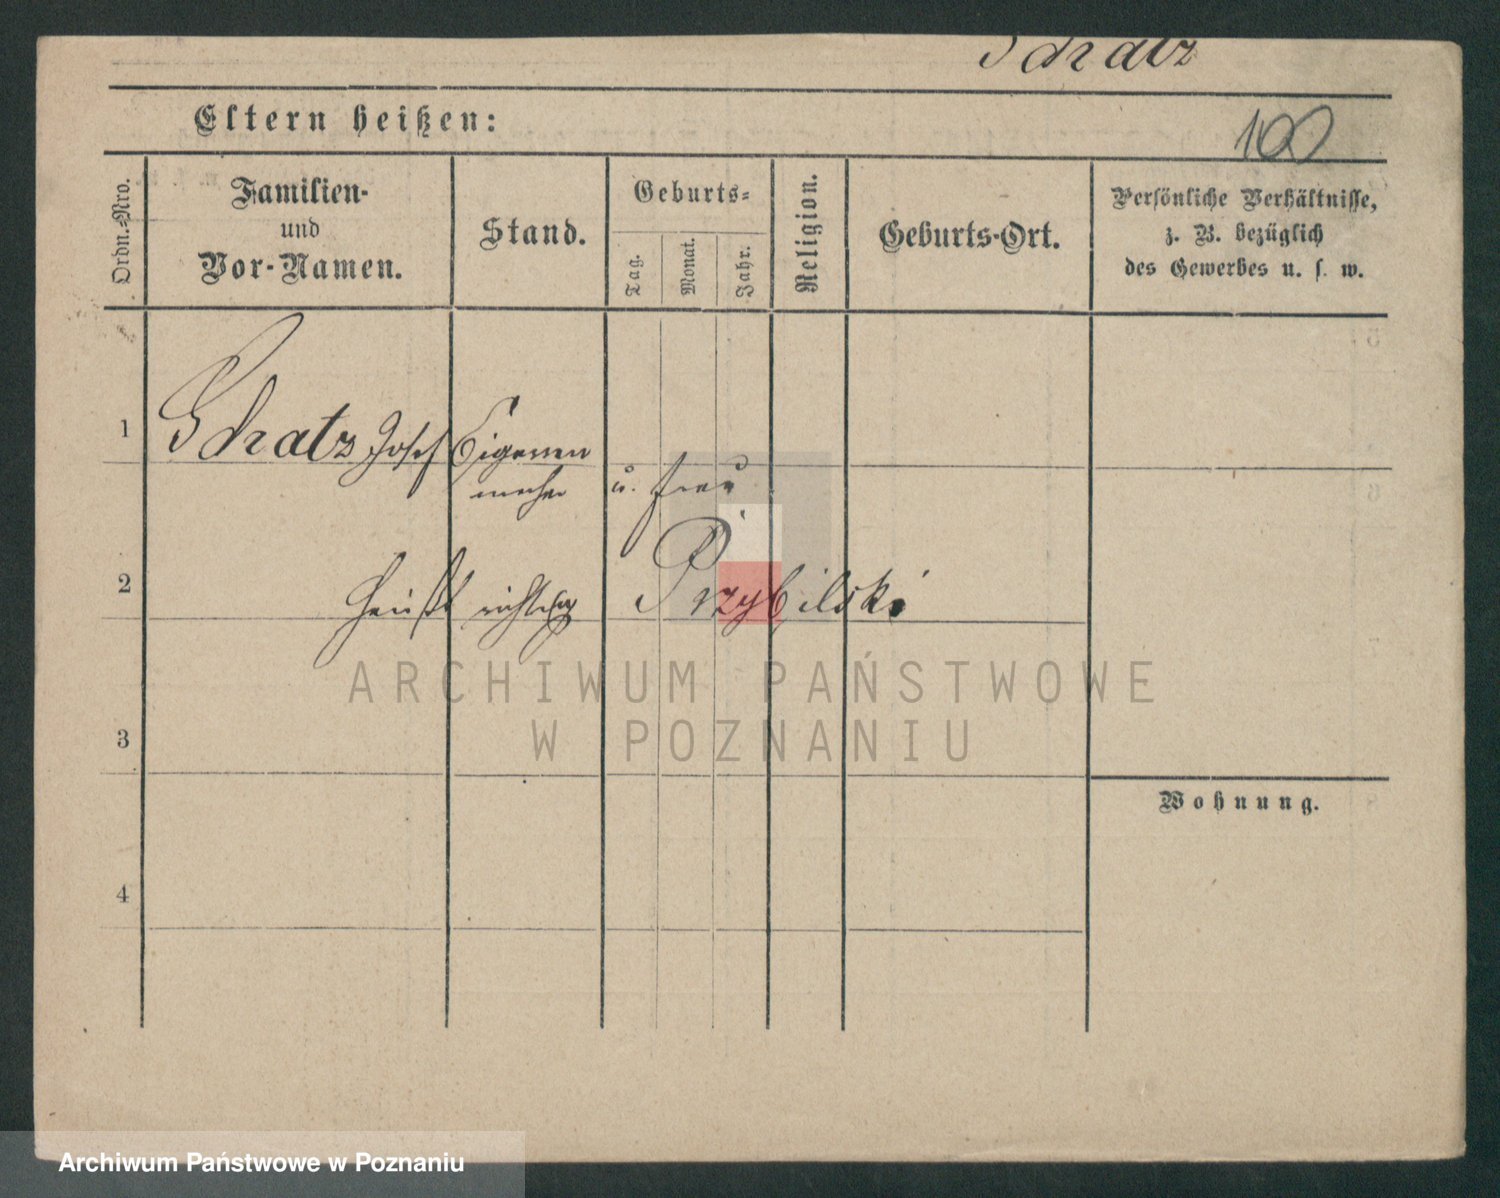 Schatz
Eltern heißen:
100
Ordn.-Nro.
Familien-
und
Vor-Namen.
Stand.
Geburts-
Tag.
Monat.
Jahr.
Religion.
Geburts-Ort.
Persönliche Verhältnisse,
z. B. bezüglich
des Gewerbes u. s. w.
1
Schatz Josef
Cigarren
macher u. Frau
2
heißt richtig Przybilski
ARCHIWUM PAŃSTWOWE
W POZNANIU
3
Wohnung.
4
Archiwum Państwowe w Poznaniu